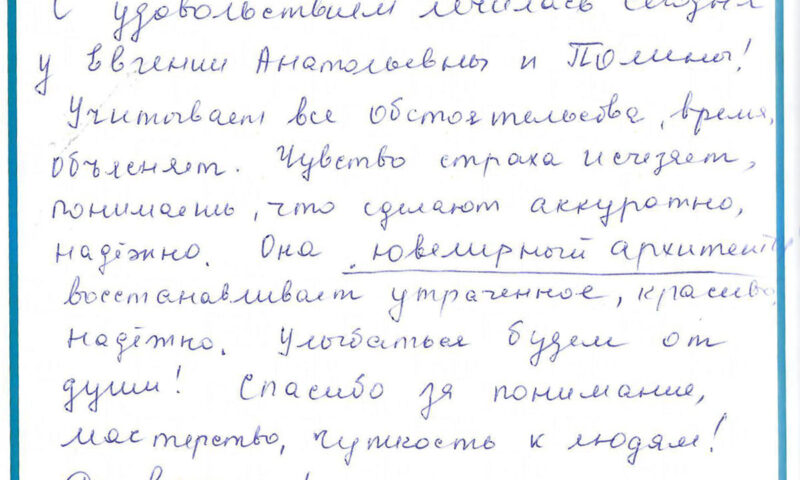 С удовольствием лечилась сегодня
у Евгении Анатольевны и Полины!
Учитывает все обстоятельства, время,
объясняет. Чувство страха исчезяет,
понимаешь, что сделают аккуратно,
надёжно. Она ювелирный архитект
восстанавливает утраченное, красиво,
надёжно. Улыбаться будем от
души! Спасибо за понимание,
мастерство, чуткость к людям!